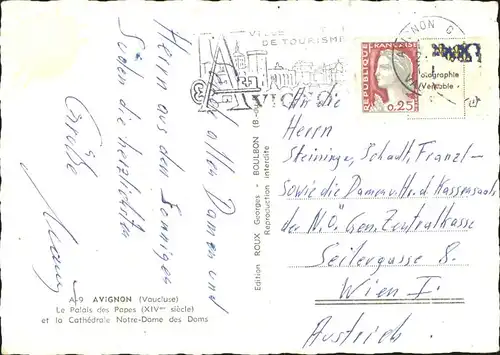 VILLE
DE TOURISME
AVIGNON
AVIGNON G
REPUBLIQUE FRANÇAISE
0,25
Véritable
Allen alten Damen und
Herrn aus dem sonnigen
Süden die herzlichsten
Grüße
An die
Herrn
Steininger, Schadt, Franzl-
Sowie die Damen u. Hr. d. Kassensaals
der N.Ö. Gen. Zentralkasse
Seilergasse 8.
Wien I.
Austrich
Edition ROUX Georges - BOULBON (B.-du-
Reproduction interdite
A-9 AVIGNON (Vaucluse)
Le Palais des Papes (XIVme siècle)
et la Cathédrale Notre-Dame des Doms